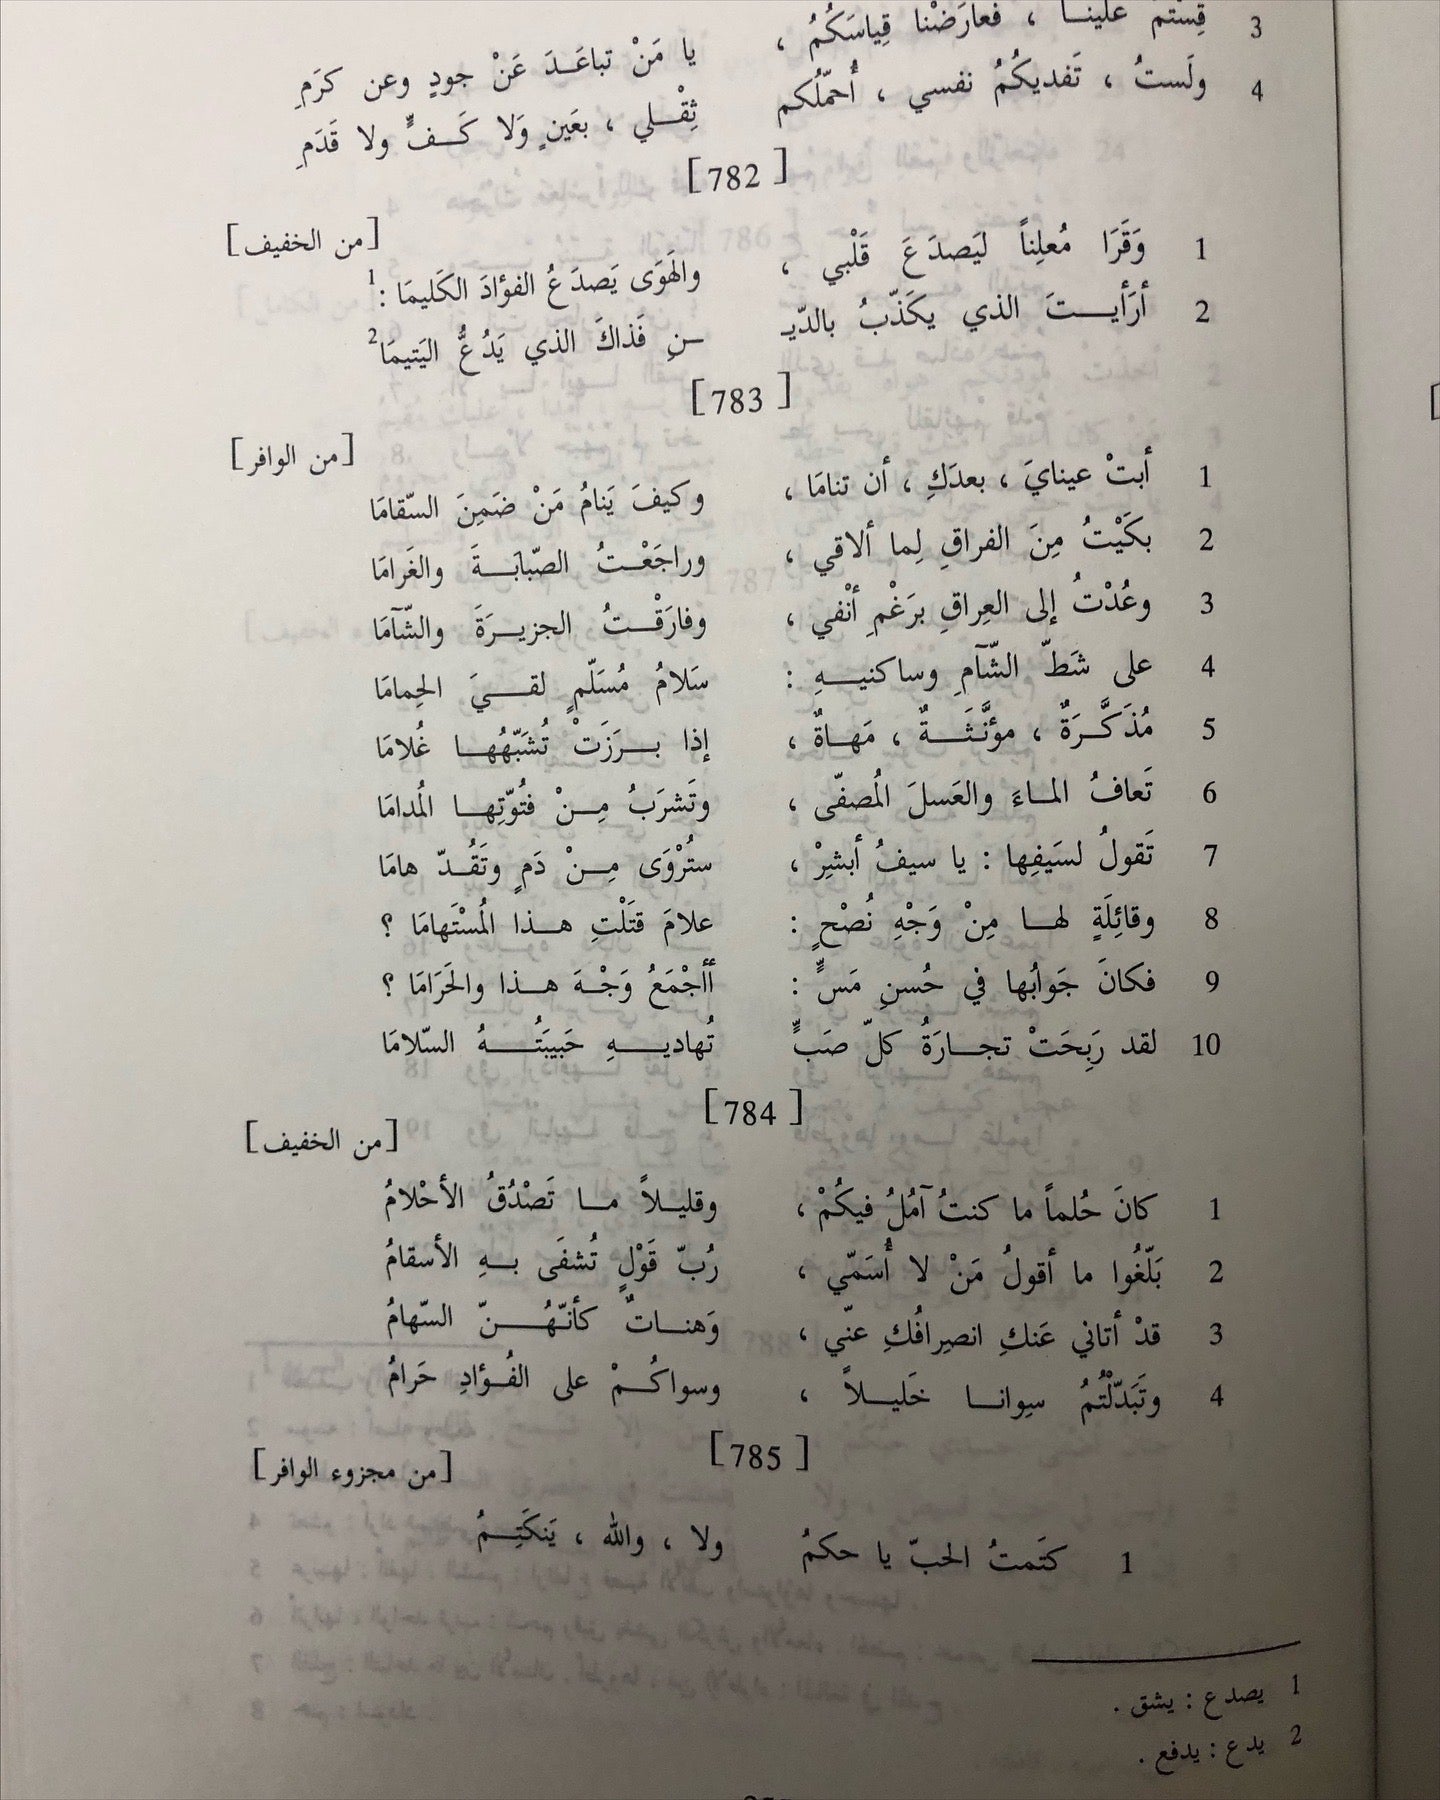 3 قِسْتُمْ علينا ، فعارَضْنا قِياسَكُمُ ، يا مَنْ تباعَدَ عَنْ جودٍ وعن كرَمِ
4 ولَستُ ، تَفديكُمُ نفسي ، أُحمّلُكم ثِقْلي ، بعَينٍ وَلا كَفٍّ ولا قَدَمِ
[ 782 ]
[من الخفيف]
1 وَقَرَا مُعلِناً ليَصدَعَ قَلْبي ، والهَوَى يَصدَعُ الفؤادَ الكَليمَا :1
2 أرَأيتَ الذي يكَذّبُ بالدّيـ ـنِ فَذاكَ الذي يَدُعُّ اليَتيمَا2
[ 783 ]
[من الوافر]
1 أبتْ عينايَ ، بعدَكِ ، أن تنامَا ، وكيفَ يَنامُ مَنْ ضَمِنَ السّقامَا
2 بكَيْتُ مِنَ الفراقِ لِما ألاقي ، وراجَعْتُ الصّبابَةَ والغَرامَا
3 وعُدْتُ إلى العِراقِ برَغْمِ أنْفي ، وفارَقْتُ الجزيرَةَ والشّآمَا
4 على شَطّ الشّآمِ وساكنيهِ : سَلامُ مُسَلّمٍ لقيَ الحِمامَا
5 مُذَكَّرَةٌ ، مؤنَّثَةٌ ، مَهاةٌ ، إذا برَزَتْ تُشَبّهُها غُلامَا
6 تَعافُ الماءَ والعَسلَ المُصفّى ، وتَشرَبُ مِنْ فتُوّتِها المُدامَا
7 تَقولُ لسَيفِها : يا سيفُ أبشِرْ ، ستُرْوَى مِنْ دَمٍ وتَقُدّ هامَا
8 وقائِلَةٍ لها مِنْ وَجْهِ نُصْحٍ : علامَ قتَلْتِ هذا المُسْتَهامَا ؟
9 فكانَ جَوابُها في حُسنِ مَسٍّ : أأجْمَعُ وَجْهَ هذا والحَرَامَا ؟
10 لقد رَبِحَتْ تجارَةُ كلّ صَبٍّ تُهاديهِ حَبيبَتُهُ السّلامَا
[ 784 ]
[من الخفيف]
1 كانَ حُلماً ما كنتُ آمُلُ فيكُمْ ، وقليلاً ما تَصْدُقُ الأحْلامُ
2 بَلّغُوا ما أقولُ مَنْ لا أُسَمّي ، رُبّ قَوْلٍ تُشفَى بهِ الأسقامُ
3 قدْ أتاني عَنكِ انصِرافُكِ عنّي ، وَهناتٌ كأنّهُنّ السّهامُ
4 وتَبَدّلْتُمُ سِوانا خَليلاً ، وسواكُمْ على الفُؤادِ حَرامُ
[ 785 ]
[من مجزوء الوافر]
1 كتَمتُ الحبّ يا حكمُ ولا ، والله ، يَنكَتِمُ
1 يصدع : يشق .
2 يدع : يدفع .